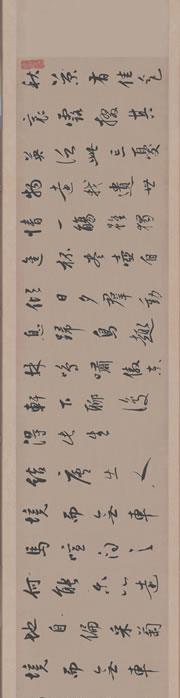 秋菊有佳色
裛露掇其
英汎此忘憂
物遠我遺世
情一觴雖獨
進杯盡壺自
傾日夕群動
息歸鳥趨
林鳴嘯傲東
軒下聊復
得此生
結廬在人
境而無車
馬喧問君
何能尔心遠
地自偏采菊
境而無車